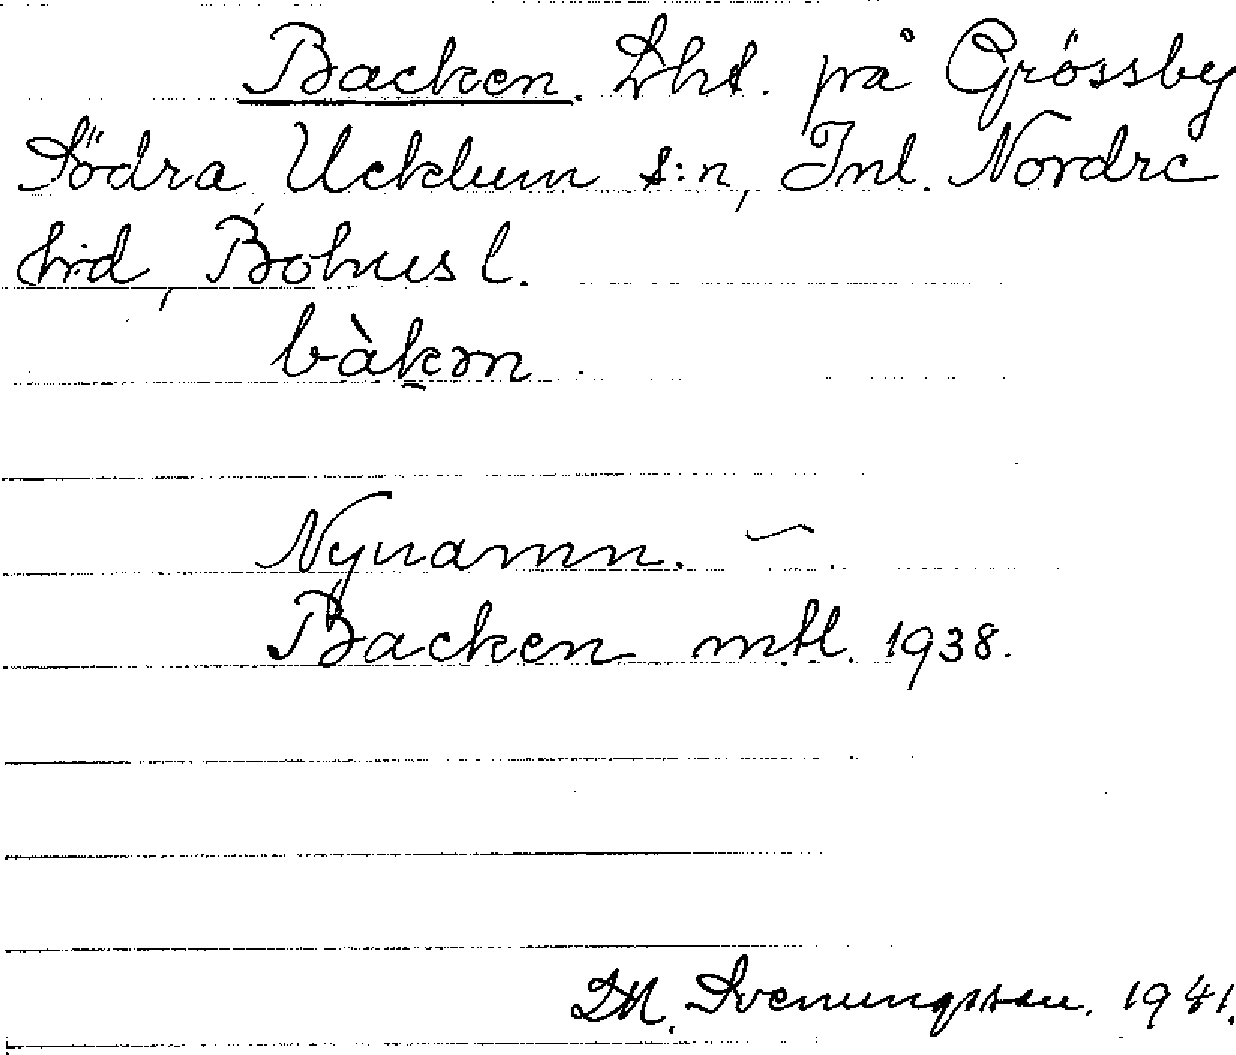 Backen. Lht. på Grössby
Södra, Ucklum s:n, Inl. Nordre
hrd, Bohus l.
bàkən
Nynamn.
Backen mtl. 1938.
Svenungsson. 1941.